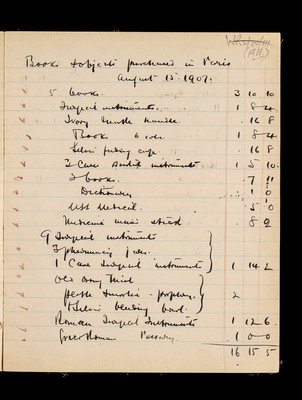 Books & objects purchased in Paris
August 15. 1907.
5 books. 3 10 10
Surgical instruments. 1 8 4
Ivory handle 16 8
Book 6 vols. 1 8 4
Silver feeding cup. 16 8
2 Case instruments 1 5 10
2 books. 7 11
Dictionary 1 0
MSS Medical. 5 0
Medicine stand 8 0
9 Surgical instruments
3 pharmacy jars.
1 Case Surgical instruments 1 14 2
porphyry. 2
bleeding bowl.
Roman Surgical Instruments 1 12 6.
Greco Roman 1 0 0
16 15 5